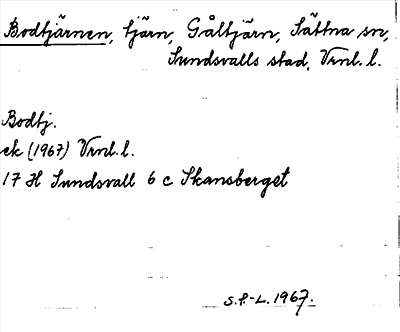 Bodtjärnen, tjärn, Gåltjärn, Sättna sn,
Sundsvalls stad, Vrnl. l.
Bodtj.
ek (1967) Vrnl. l.
17 H Sundsvall 6 c Skansberget
S.P.-L. 1967.